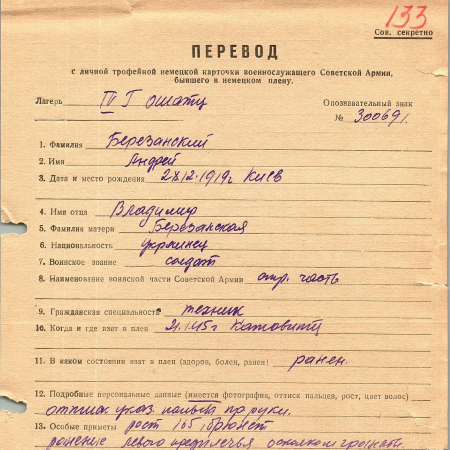 133
Сов. секретно
ПЕРЕВОД
с личной трофейной немецкой карточки военнослужащего Советской Армии,
бывшего в немецком плену.
Лагерь IV Г ошатц Опознавательный знак
№ 300691.
1. Фамилия Березанский
2. Имя Андрей
3. Дата и место рождения 1919г Киев
4. Имя отца Владимир
5. Фамилия матери Березанская
6. Национальность украинец
7. Воинское звание солдат
8. Наименование воинской части Советской Армии отр. часть
9. Гражданская специальность техник
10. Когда и где взят в плен 21.1.45г Катовитц
11. В каком состоянии взят в плен (здоров, болен, ранен) ранен.
12. Подробные персональные данные (имеется фотография, оттиск пальцев, рост, цвет волос)
оттиск указ пальца пр руки.
13. Особые приметы рост 165, брюнет
ранение левого предплечья осколком гранаты.